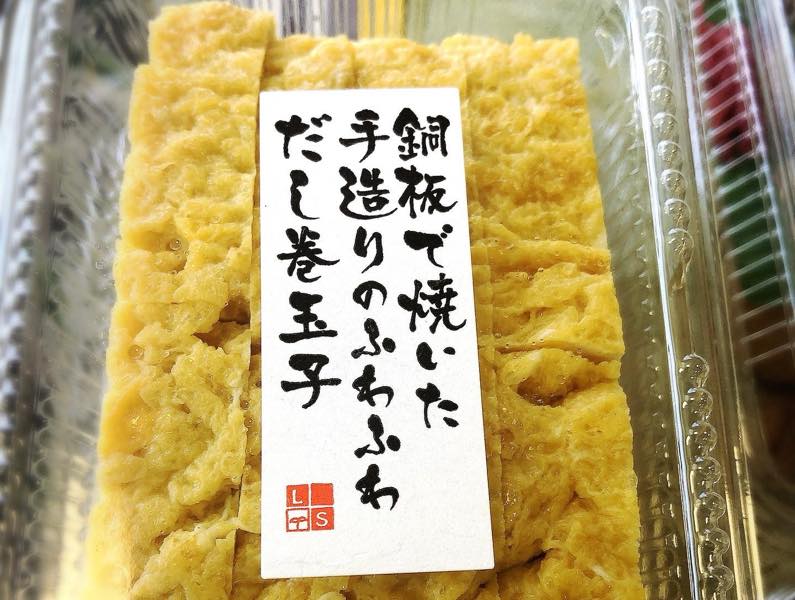 銅板で焼いた
手造りのふわふわ
だし巻玉子
L
S